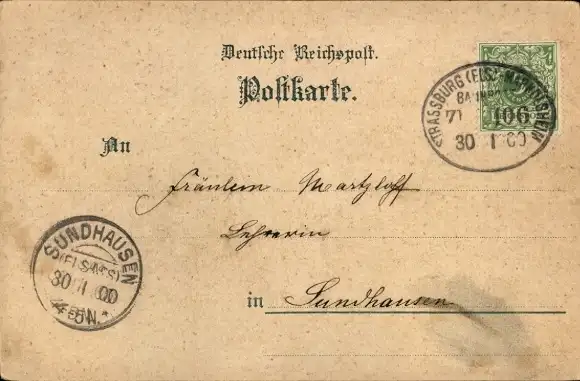 Deutsche Reichspost.
Postkarte.
STRASSBURG (ELS)-MARKOLSHEIM
BAHNPOST
ZUG 106
30 1 00
An
Fräulein Martzloff
Lehrerin
in Sundhausen
SUNDHAUSEN
(ELSASS)
30 1 00
4-5N.*